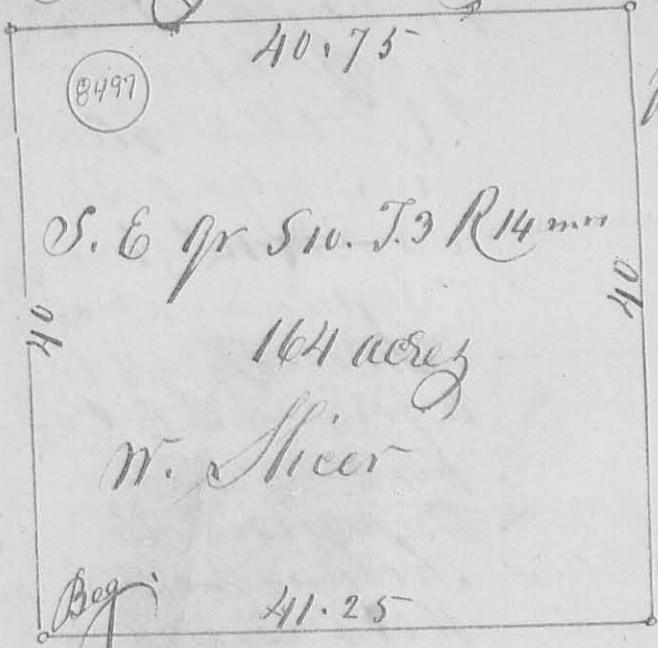 40.75
8497
S. E qr S 10. T. 3 R 14
40
40
164 acres
W. Slicer
Beg.
41.25